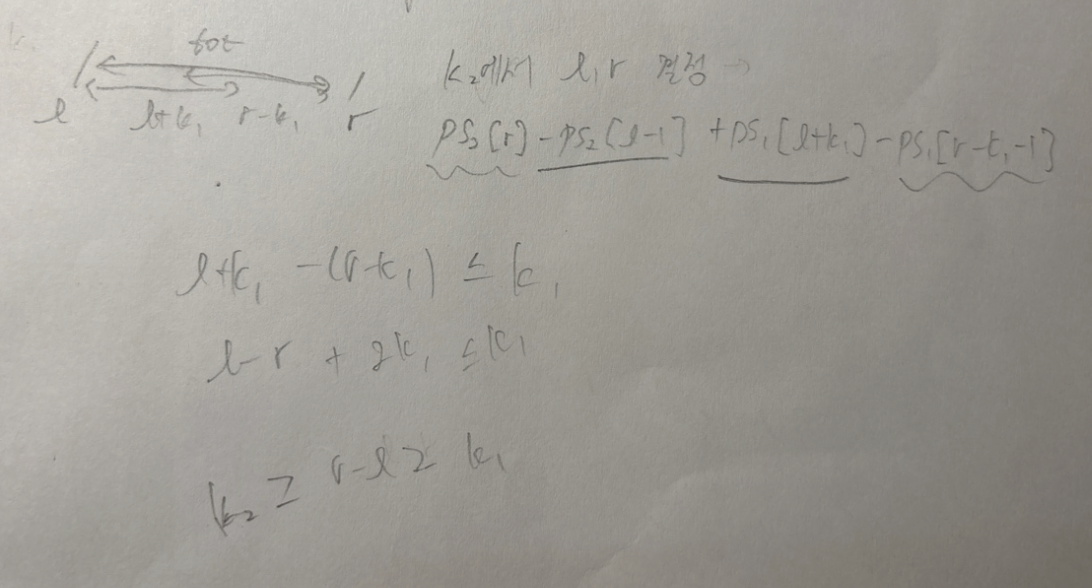 tot
l l+k₁ r-k₁ r
k₂에서 l,r 결정 →
PS₂[r] - PS₂[l-1] + PS₁[l+k₁] - PS₁[r-k₁-1]
l+k₁ - (r-k₁) ≤ k₁
l-r + 2k₁ ≤ k₁
k₂ ≥ r-l ≥ k₁